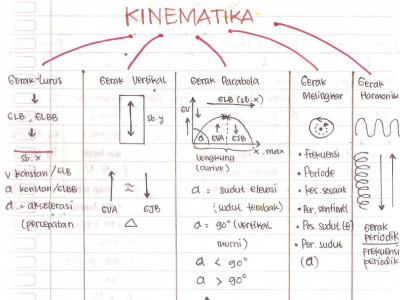 KINEMATIKA
Gerak Lurus
GLB, GLBB
sb. x
v konstan / GLB
a konstan / GLBB
a = akselerasi
(percepatan
Gerak Vertikal
sb.y
≈
GVA GJB
△
Gerak Parabola
GLB (sb. x)
GV
GVA GJB
α
x.max
lengkung
(curive)
α = sudut elevasi
(sudut tembak)
α = 90° (vertikal
murni)
α < 90°
α > 90°
Gerak
Melingkar
• Frekuensi
• Periode
• Kec. sesaat
• Per. sentripetal
• Pos. sudut (θ)
• Per. sudut
(α)
Gerak
Harmonik
Gerak
periodik
Frekuensi
periodik